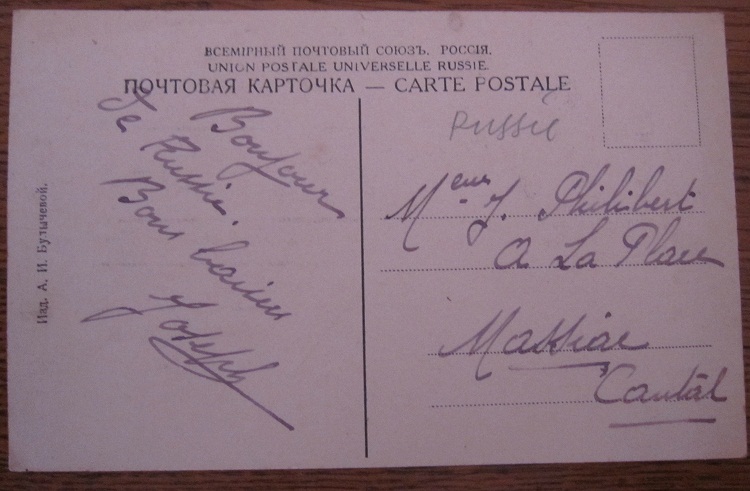 ВСЕМІРНЫЙ ПОЧТОВЫЙ СОЮЗЪ. РОССІЯ.
UNION POSTALE UNIVERSELLE RUSSIE.
ПОЧТОВАЯ КАРТОЧКА — CARTE POSTALE
Russie
Bonjour
de Russie.
Bons baisers
Joseph
Meur J. Philibert
A La Place
Massiac
Cantal
Изд. А. И. Булычевой.